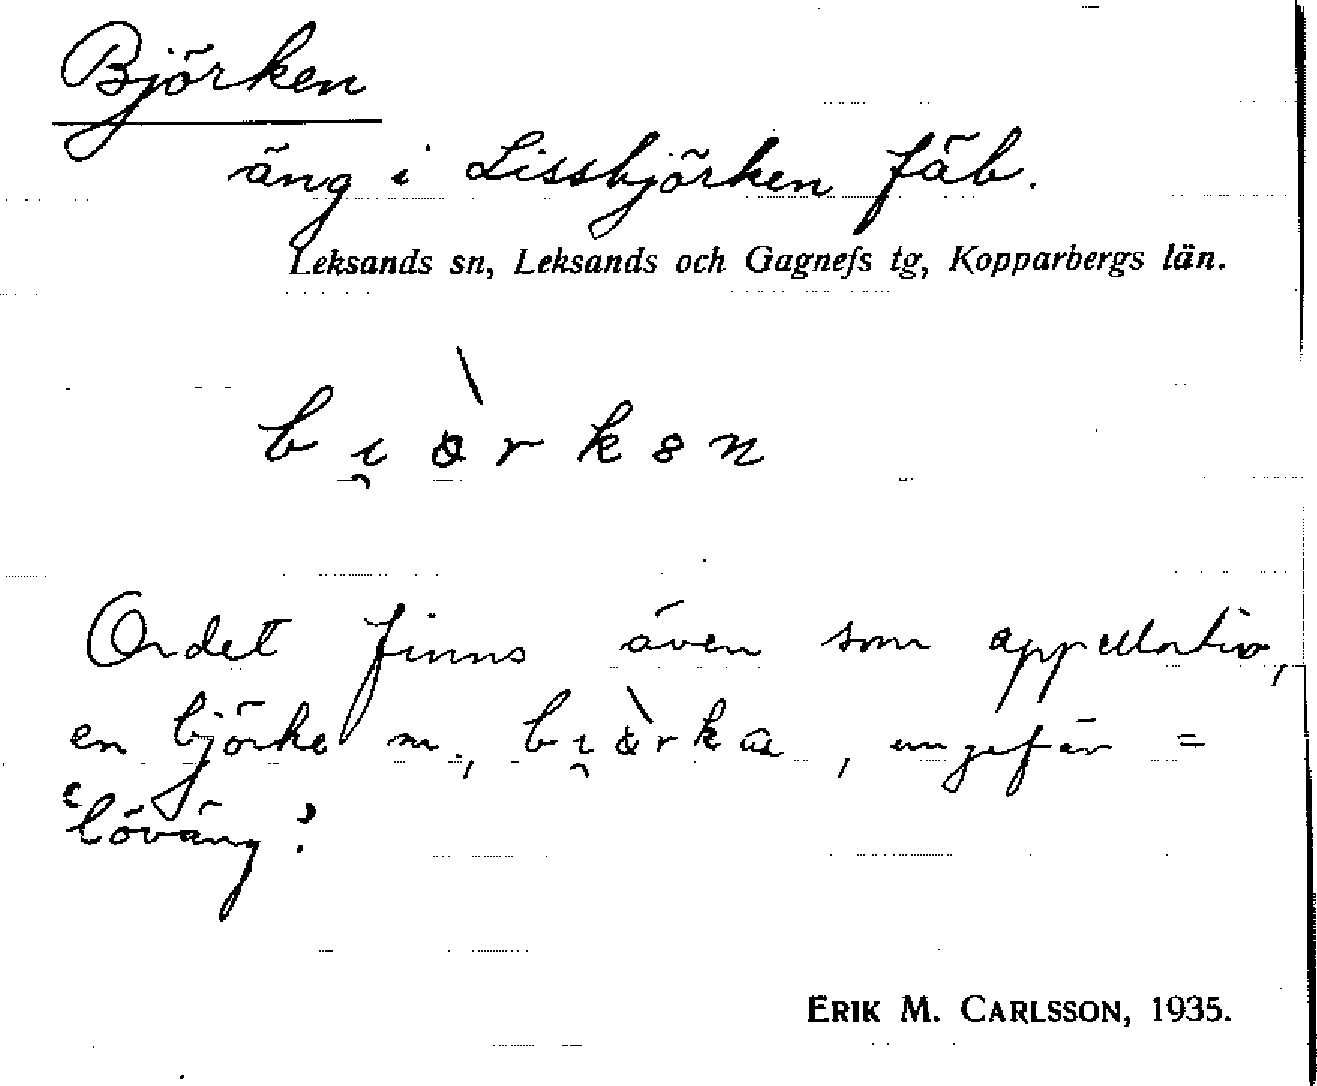 Björken
äng i Lissbjörken fäb.
Leksands sn, Leksands och Gagnefs tg, Kopparbergs län.
Ordet finns även som appellativ,
en björke m., ungefär =
'löväng'.
ERIK M. CARLSSON, 1935.